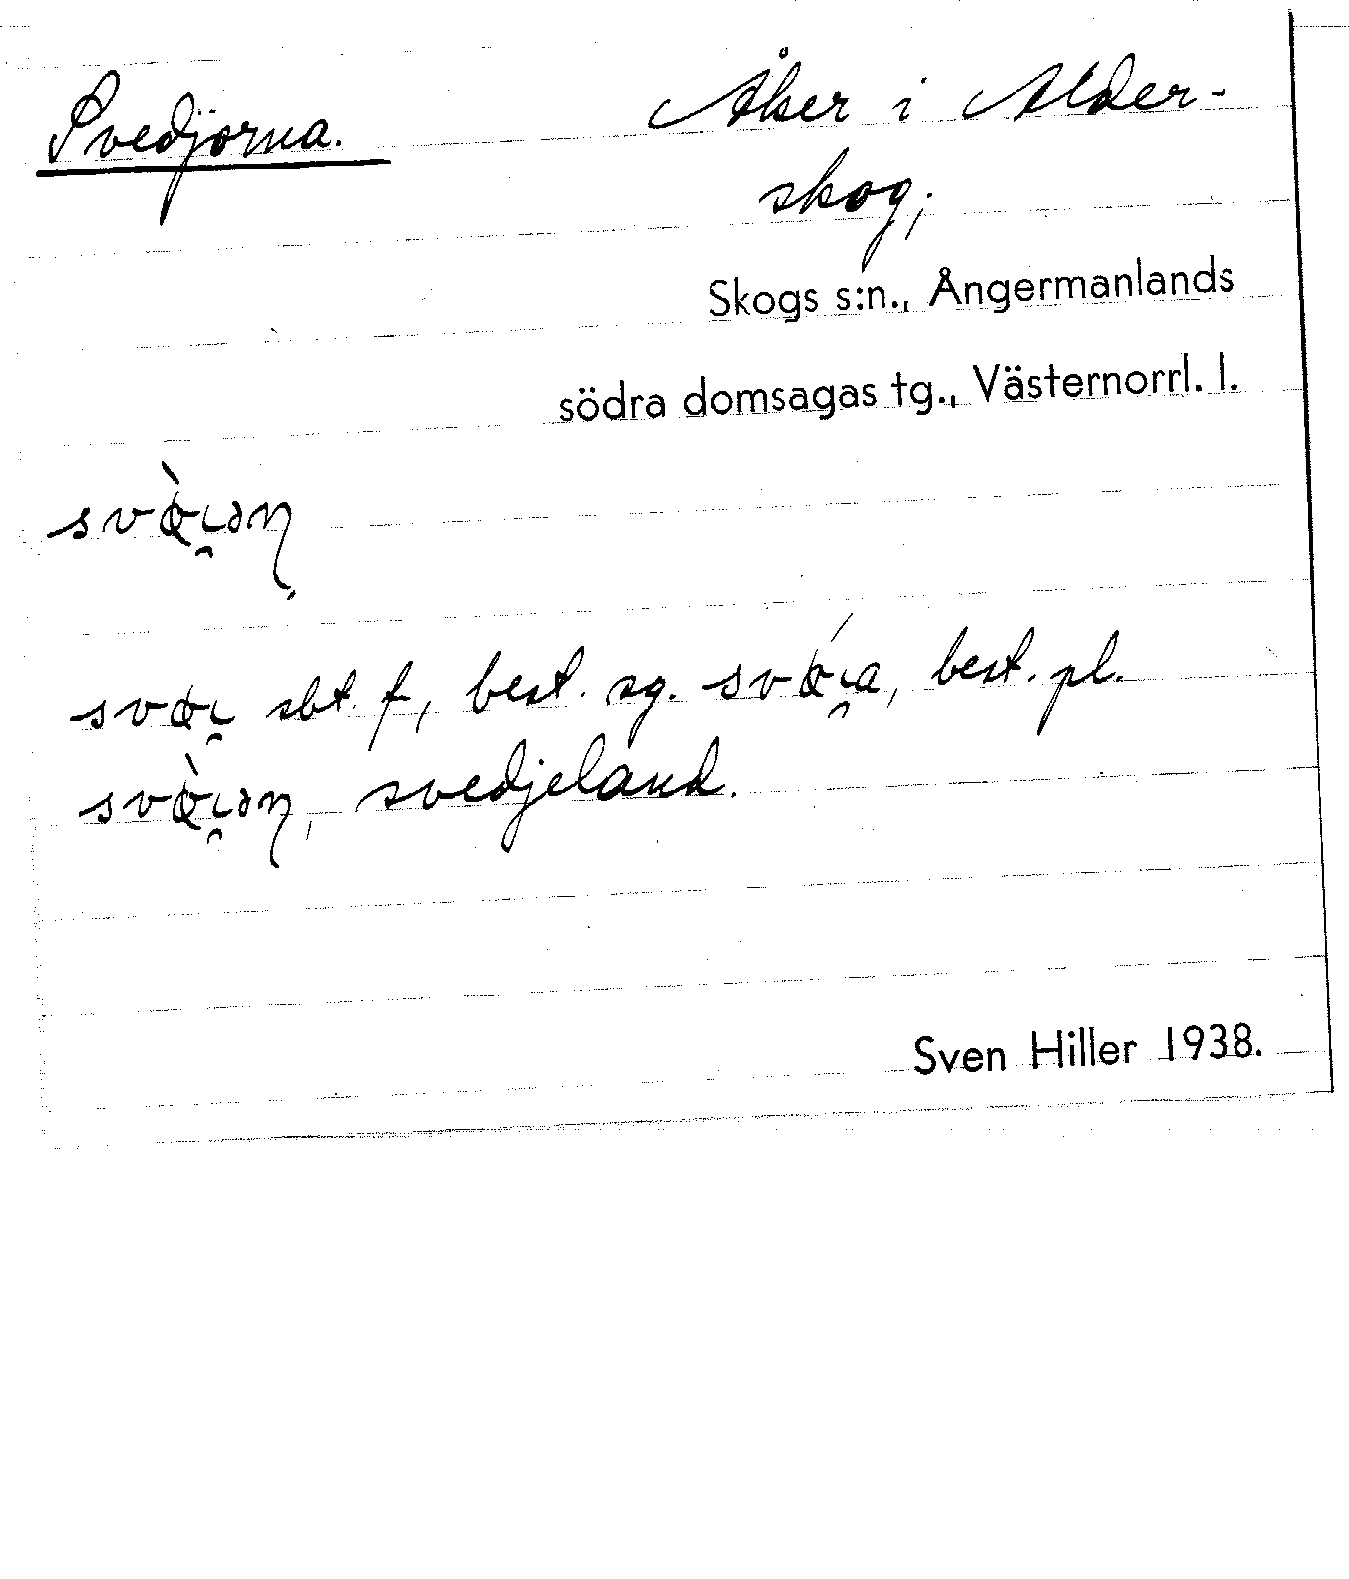 Svedjorna. Åker i Alder-
skog;
Skogs s:n., Ångermanlands
södra domsagas tg., Västernorrl. l.
sbt. f, best. sg. best. pl.
svedjeland.
Sven Hiller 1938.